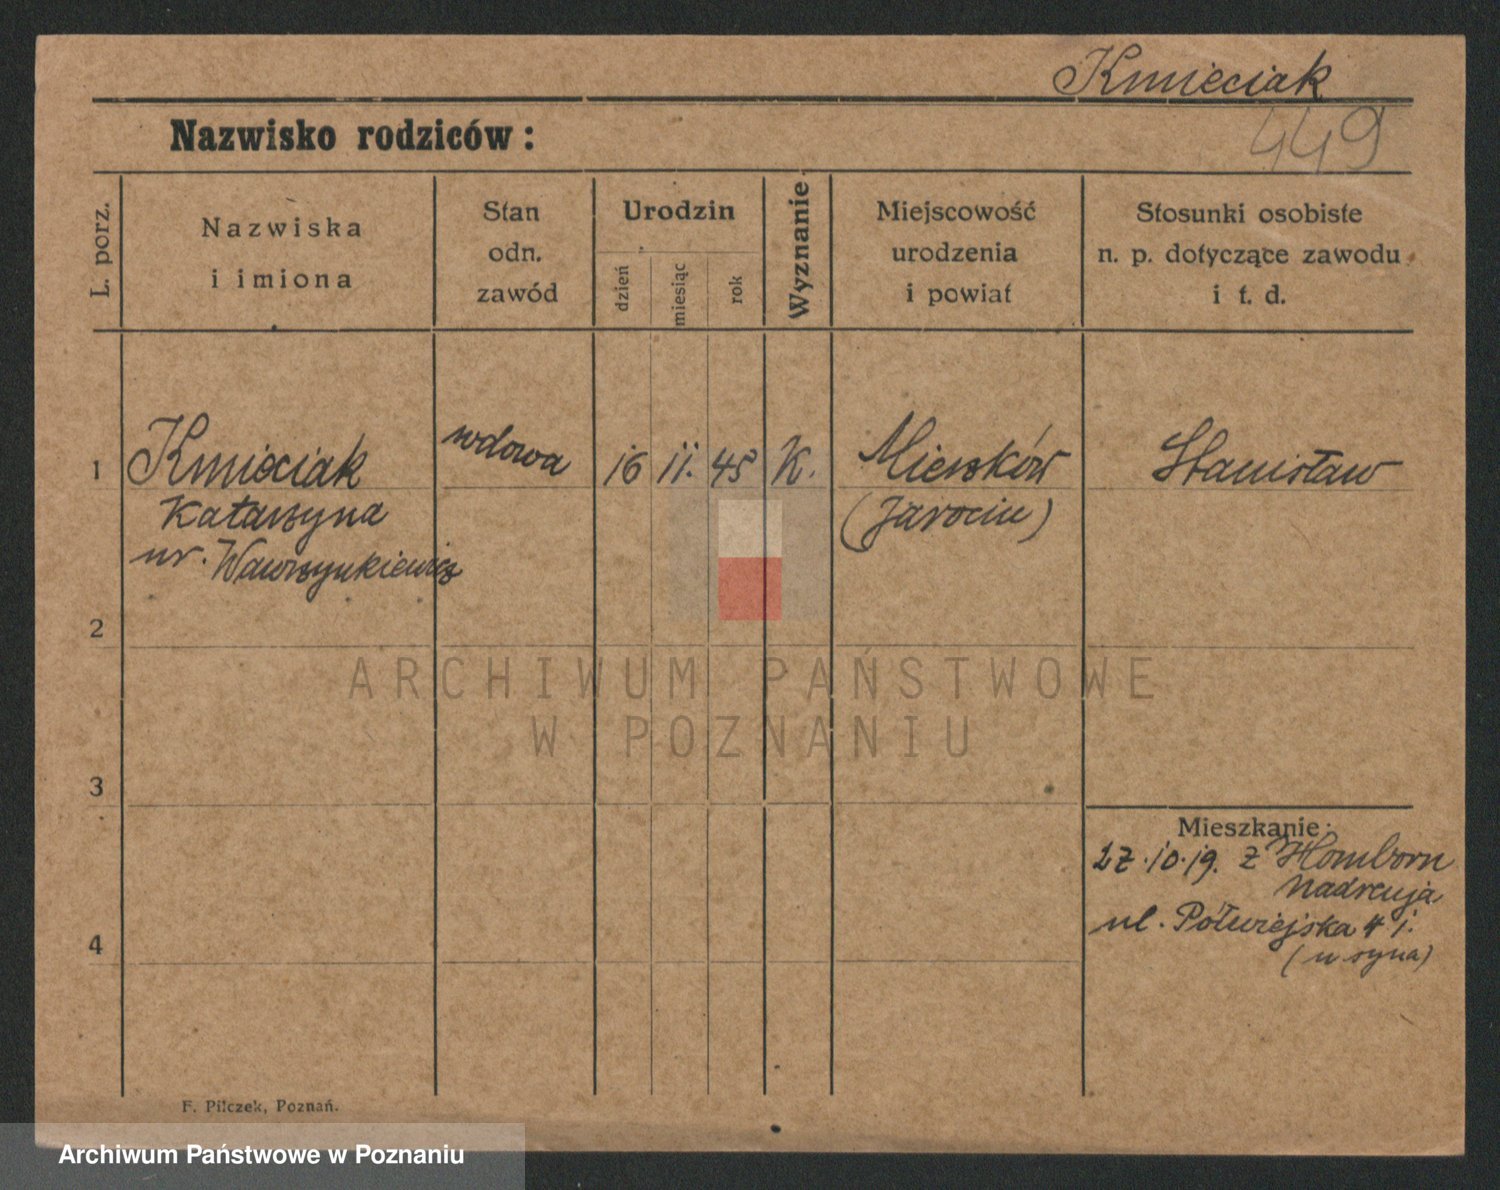 Kmieciak
449
Nazwisko rodziców:
L. porz.
Nazwiska
i imiona
Stan
odn.
zawód
Urodzin
dzień
miesiąc
rok
Wyznanie
Miejscowość
urodzenia
i powiat
Stosunki osobiste
n. p. dotyczące zawodu
i t. d.
1
Kmieciak
Katarzyna
ur. Wawrzynkiewicz
wdowa
16
11.
45
K.
Mieszków
(Jarocin)
Stanisław
2
3
4
Mieszkanie:
27.10.19. z Homborn
Nadrenja
ul. Półwiejska 4 I.
(u syna)
F. Pilczek, Poznań.
ARCHIWUM PAŃSTWOWE
W POZNANIU
Archiwum Państwowe w Poznaniu